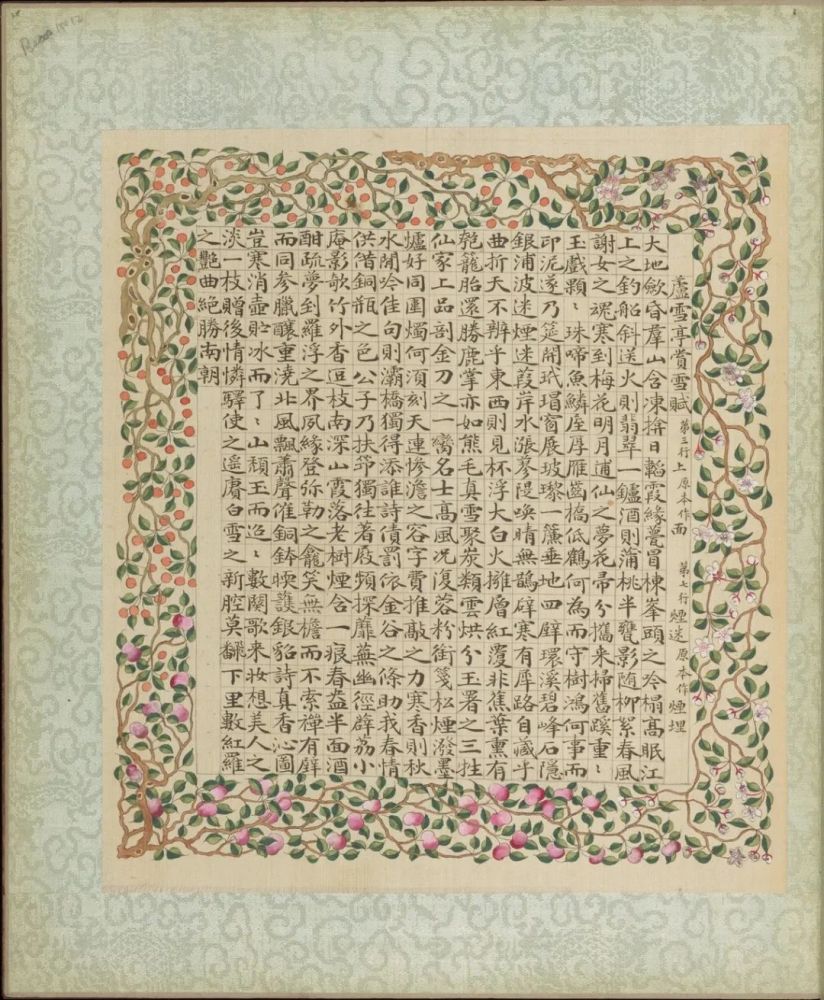 蘆雪亭賞雪賦 第三行上原本作面 第七行煙迷原本作煙埋
大地歛昏羣山含凍揜日韜霞緣甍冒棟峯頭之冷榻高眠江
上之釣船斜送火則翡翠一鑪酒則蒲桃半甕影随柳絮春風
謝女之魂寒到梅花明月逋仙之夢花帚分攜来掃舊蹊重〻
玉戲顆〻珠啼魚鱗厚雁齒橋低鶴何為而守樹鴻何事而
印泥遂乃筵開玳瑁窗展玻瓈一簾垂地四壁環溪碧峰石隱
銀浦波迷煙迷葭岸水漲蓼隄喚晴無鵲辟寒有犀路自藏乎
曲折天不辨乎東西則見杯浮大白火擁層紅非蕉葉熏有
籠胎還勝鹿掌亦如熊毛真雪聚炭類雲烘分玉署之三挂
仙家上品剖金刀之一臠名士高風况復蓉粉銜箋松煙潑墨
爐好同圍燭何湏刻天連慘澹之容字費推敲之力寒香則秋
水閒吟佳句則灞橋獨得添誰詩債罰依金谷之條助我春情
供借銅瓶之色公子乃扶笻獨往著屐頻探蘼蕪幽徑薜荔小
庵影欹竹外香逗枝南深山霞落老树煙含一痕春盎半面酒
酣疏夢到羅浮之界夙緣登弥勒之龕笑無檐而不索禪有壁
而同参臘釀重澆北風飄蕭聲催銅鉢暎護銀貂詩真香沁圖
豈寒消壺貯冰而了〻山頹玉而迢〻數闋歌来妝想美人之
淡一枝贈後情憐驛使之遥賡白雪之新腔莫翻下里數紅羅
之艷曲絶勝南朝